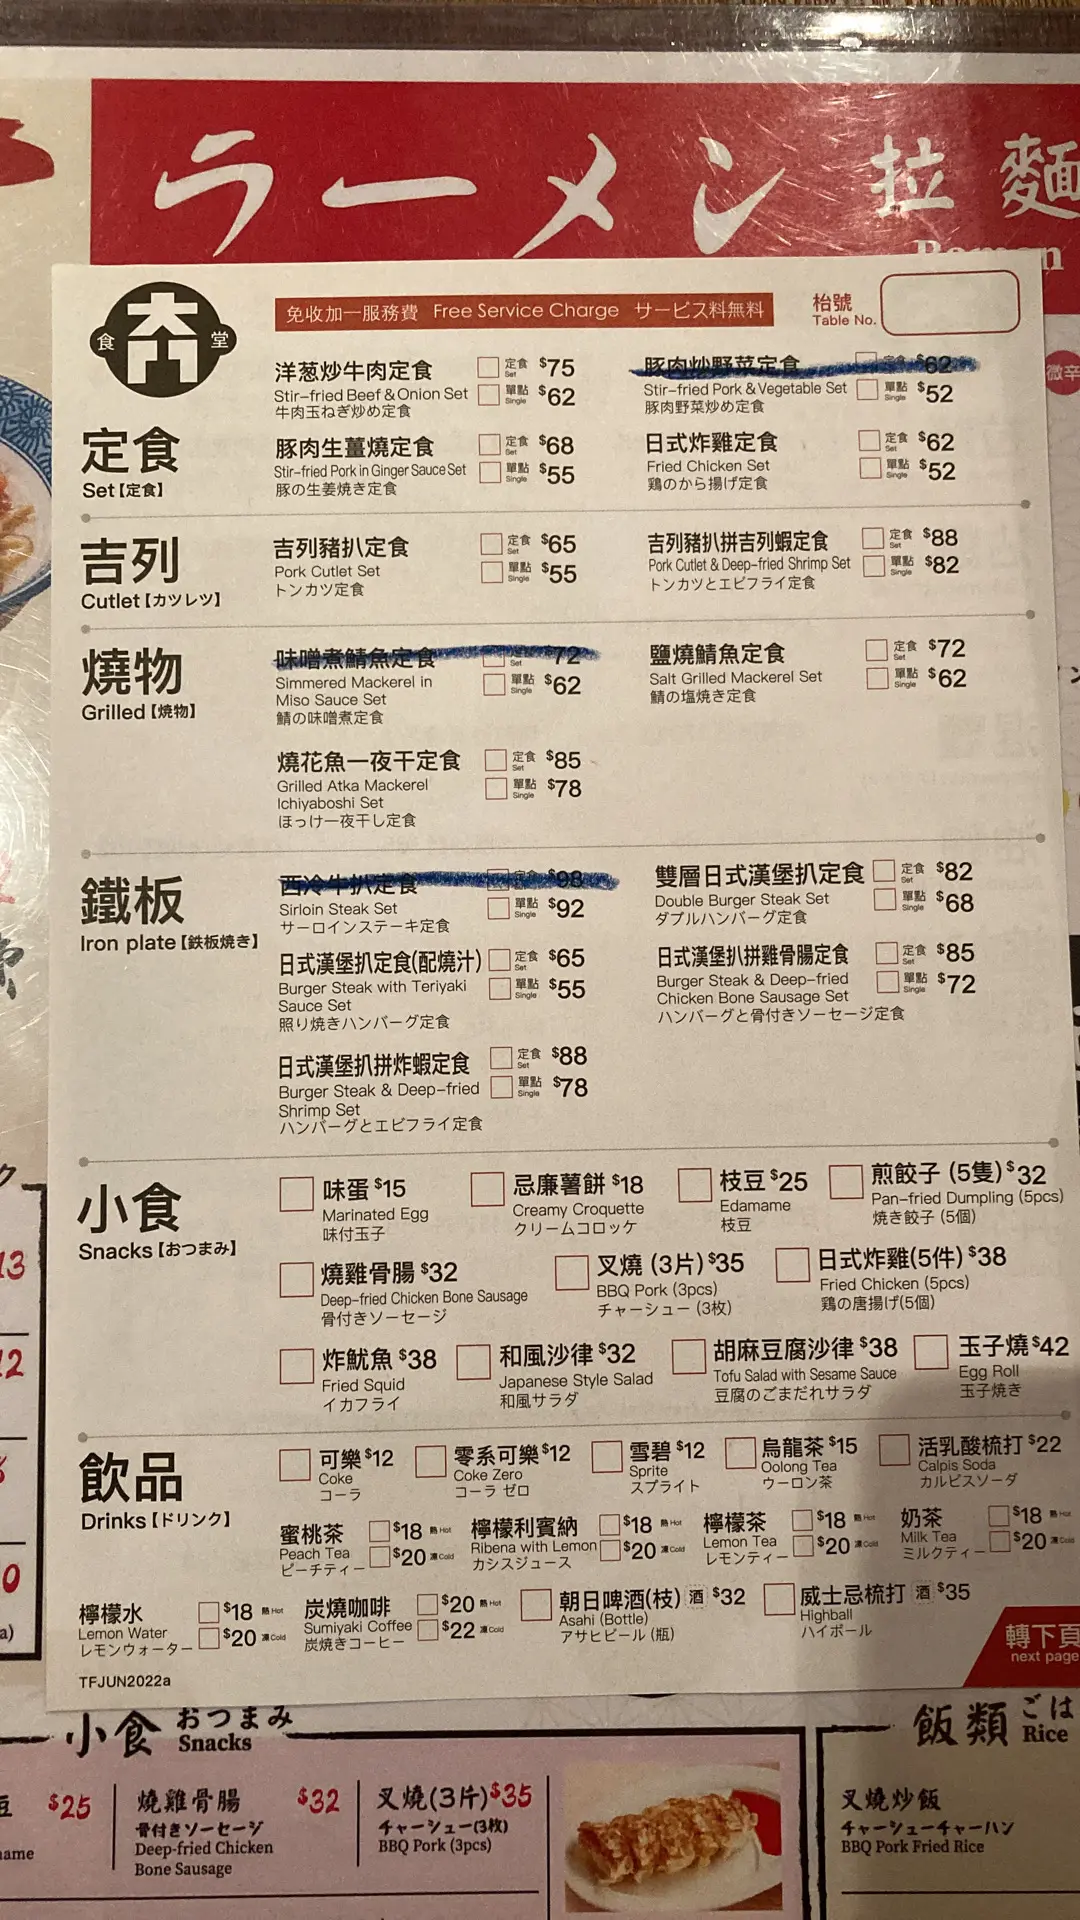 ラーメン 拉麵
Ramen
食 堂
免收加一服務費 Free Service Charge サービス料無料
枱號
Table No.
微辛
定食
Set【定食】
洋葱炒牛肉定食 定食 Set $75
Stir-fried Beef & Onion Set 單點 Single $62
牛肉玉ねぎ炒め定食
豚肉炒野菜定食 定食 $62
Stir-fried Pork & Vegetable Set 單點 Single $52
豚肉野菜炒め定食
豚肉生薑燒定食 定食 Set $68
Stir-fried Pork in Ginger Sauce Set 單點 Single $55
豚の生姜焼き定食
日式炸雞定食 定食 Set $62
Fried Chicken Set 單點 Single $52
鶏のから揚げ定食
吉列
Cutlet【カツレツ】
吉列豬扒定食 定食 Set $65
Pork Cutlet Set 單點 Single $55
トンカツ定食
吉列豬扒拼吉列蝦定食 定食 Set $88
Pork Cutlet & Deep-fried Shrimp Set 單點 Single $82
トンカツとエビフライ定食
燒物
Grilled【焼物】
味噌煮鯖魚定食 定食 Set $72
Simmered Mackerel in 單點 Single $62
Miso Sauce Set
鯖の味噌煮定食
鹽燒鯖魚定食 定食 Set $72
Salt Grilled Mackerel Set 單點 Single $62
鯖の塩焼き定食
燒花魚一夜干定食 定食 Set $85
Grilled Atka Mackerel 單點 Single $78
Ichiyaboshi Set
ほっけ一夜干し定食
鐵板
Iron plate【鉄板焼き】
西冷牛扒定食 定食 $98
Sirloin Steak Set 單點 Single $92
サーロインステーキ定食
雙層日式漢堡扒定食 定食 Set $82
Double Burger Steak Set 單點 Single $68
ダブルハンバーグ定食
日式漢堡扒定食(配燒汁) 定食 Set $65
Burger Steak with Teriyaki 單點 Single $55
Sauce Set
照り焼きハンバーグ定食
日式漢堡扒拼雞骨腸定食 定食 Set $85
Burger Steak & Deep-fried 單點 Single $72
Chicken Bone Sausage Set
ハンバーグと骨付きソーセージ定食
日式漢堡扒拼炸蝦定食 定食 Set $88
Burger Steak & Deep-fried 單點 Single $78
Shrimp Set
ハンバーグとエビフライ定食
小食
Snacks【おつまみ】
味蛋 $15
Marinated Egg
味付玉子
忌廉薯餅 $18
Creamy Croquette
クリームコロッケ
枝豆 $25
Edamame
枝豆
煎餃子 (5隻) $32
Pan-fried Dumpling (5pcs)
焼き餃子 (5個)
燒雞骨腸 $32
Deep-fried Chicken Bone Sausage
骨付きソーセージ
叉燒 (3片) $35
BBQ Pork (3pcs)
チャーシュー (3枚)
日式炸雞(5件) $38
Fried Chicken (5pcs)
鶏の唐揚げ(5個)
炸魷魚 $38
Fried Squid
イカフライ
和風沙律 $32
Japanese Style Salad
和風サラダ
胡麻豆腐沙律 $38
Tofu Salad with Sesame Sauce
豆腐のごまだれサラダ
玉子燒 $42
Egg Roll
玉子焼き
飲品
Drinks【ドリンク】
可樂 $12
Coke
コーラ
零系可樂 $12
Coke Zero
コーラ ゼロ
雪碧 $12
Sprite
スプライト
烏龍茶 $15
Oolong Tea
ウーロン茶
活乳酸梳打 $22
Calpis Soda
カルピスソーダ
蜜桃茶 $18 熱 Hot
Peach Tea $20 凍 Cold
ピーチティー
檸檬利賓納 $18 熱 Hot
Ribena with Lemon $20 凍 Cold
カシスジュース
檸檬茶 $18 熱 Hot
Lemon Tea $20 凍 Cold
レモンティー
奶茶 $18 熱 Hot
Milk Tea $20 凍 Cold
ミルクティー
檸檬水 $18 熱 Hot
Lemon Water $20 凍 Cold
レモンウォーター
炭燒咖啡 $20 熱 Hot
Sumiyaki Coffee $22 凍 Cold
炭焼きコーヒー
朝日啤酒(枝) 酒 $32
Asahi (Bottle)
アサヒビール (瓶)
威士忌梳打 酒 $35
Highball
ハイボール
轉下頁
next page
TFJUN2022a
小食 おつまみ
Snacks
飯類 ごは
Rice
豆 $25
ame
燒雞骨腸 $32
骨付きソーセージ
Deep-fried Chicken
Bone Sausage
叉燒(3片) $35
チャーシュー(3枚)
BBQ Pork (3pcs)
叉燒炒飯
チャーシューチャーハン
BBQ Pork Fried Rice